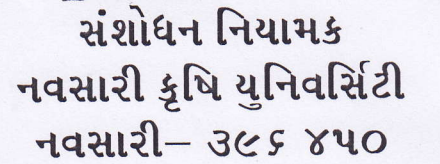 સંશોધન નિયામક
નવસારી કૃષિ યુનિવર્સિટી
નવસારી– ૩૯૬ ૪૫૦